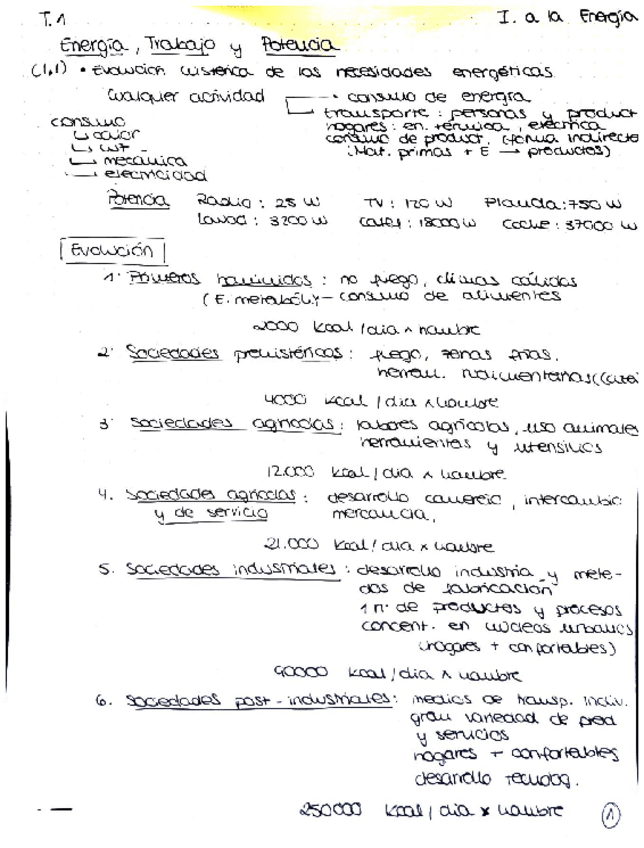 T.1 I. a la Energía
Energía, Trabajo y Potencia
(1.1) • Evolución histórica de las necesidades energéticas
Cualquier actividad - consumo de energía
transporte: personas y product
consumo hogares: en. térmica, eléctrica
calor consumo de product. (forma indirecta
luz (Mat. primas + E → productos)
mecánica
electricidad
Potencia Radio: 25 W TV: 120 W Plancha: 750 W
Lavad: 3200 W Calef: 18000 W Coche: 37000 W
Evolución
1. Primeros homínidos: no fuego, climas cálidos
(E. metaból. - consumo de alimentos
2000 kcal/dia x hombre
2. Sociedades prehistóricas: fuego, zonas frías.
herram. rudimentarias
4000 kcal/dia x hombre
3. Sociedades agrícolas: labores agrícolas, uso animales
herramientas y utensilios
12.000 kcal/dia x hombre
4. Sociedades agrícolas: desarrollo comercio, intercambio
y de servicio mercancia.
21.000 kcal/dia x hombre
5. Sociedades industriales: desarrollo industria y méto-
dos de fabricación
↑ nº de productos y procesos
concent. en núcleos urbanos
(hogares + confortables)
90000 kcal/dia x hombre
6. Sociedades post-industriales: medios de transp. indiv.
gran variedad de prod
y servicios
hogares + confortables
desarrollo tecnolog.
250000 kcal/dia x hombre 1